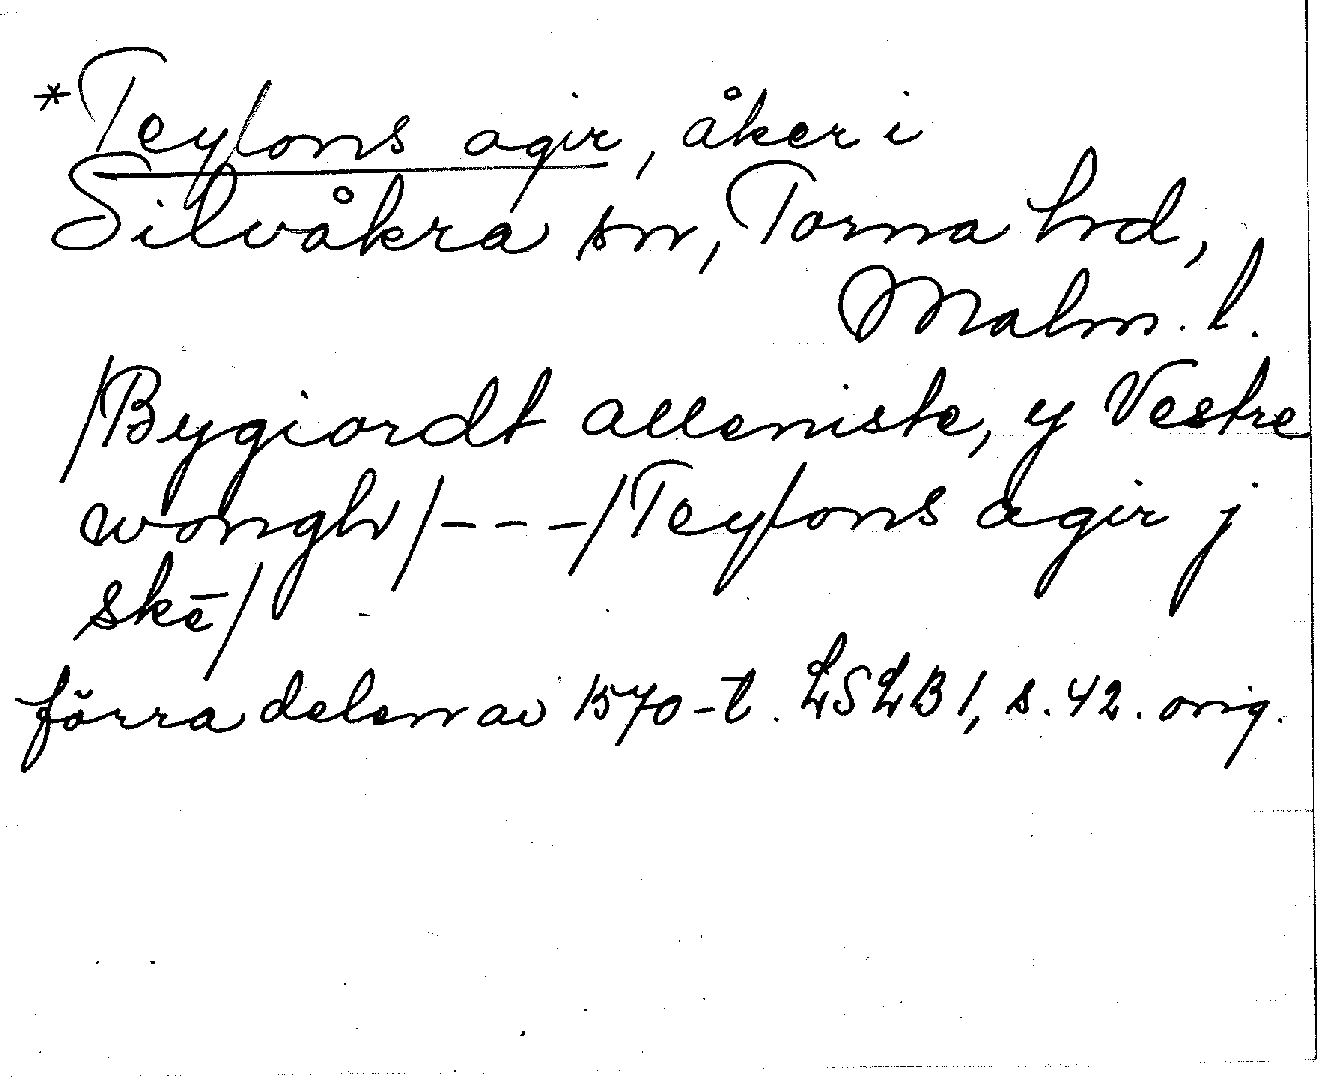 *Teylons agir, åker i
Silvåkra sn, Torna hd,
Malm. l.
/Bygiordt alleniste, y Vestre
wongh/---/Teylons agir j
skē/
förra delen av 1570-t. LSLB 1, s. 42. orig.